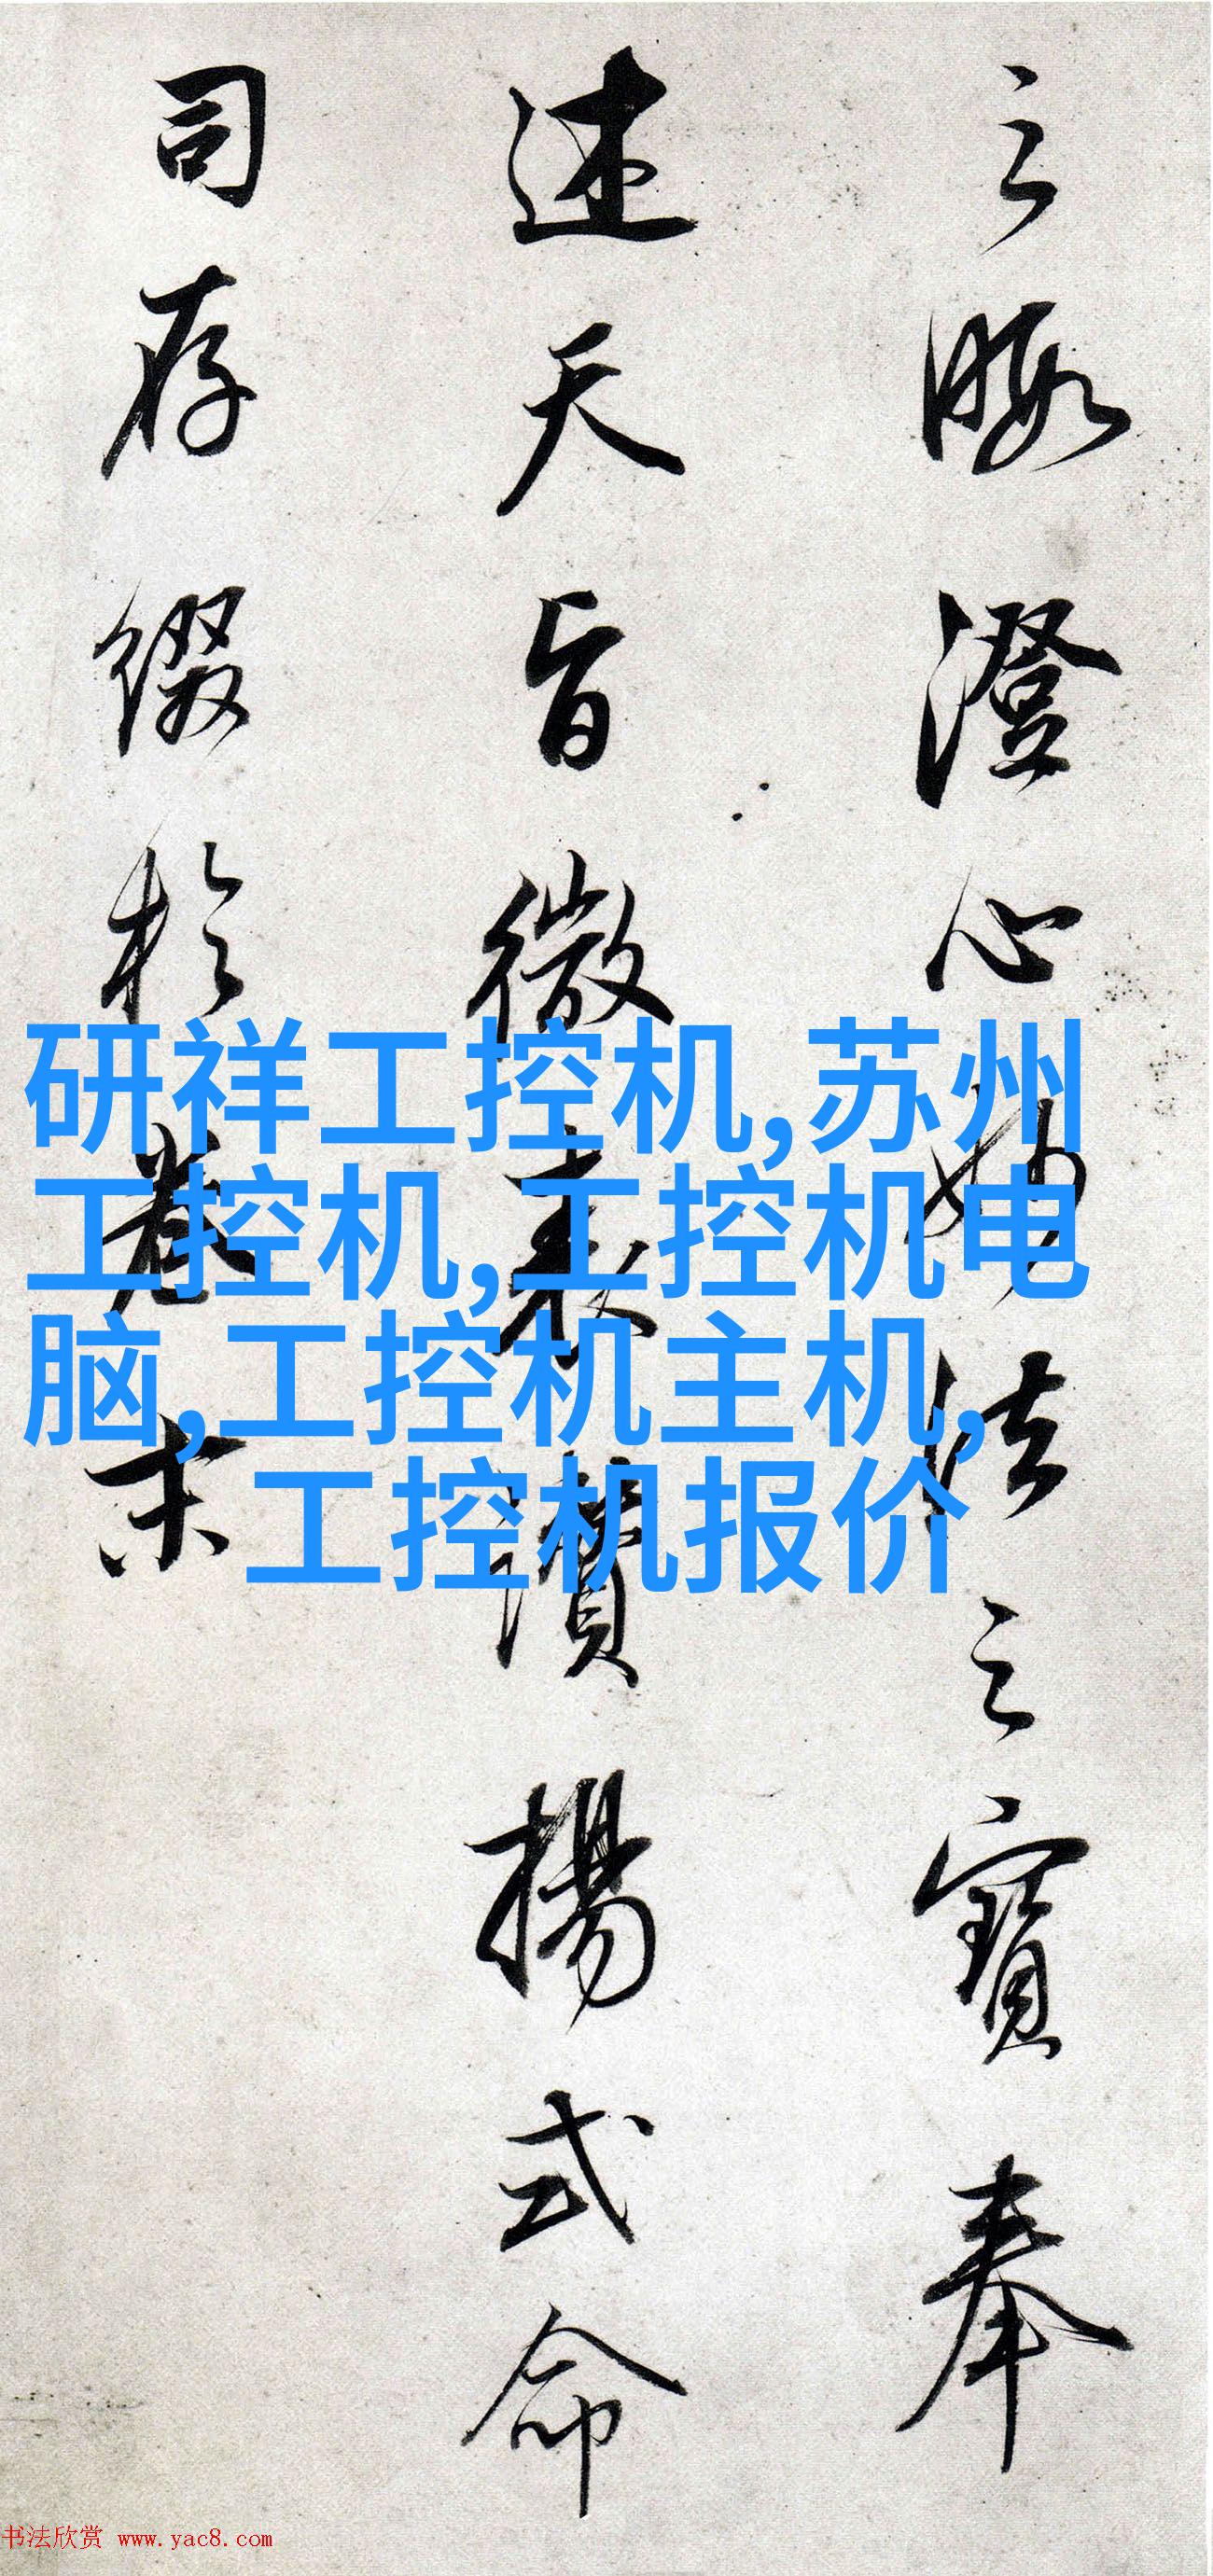 之暇澄心妙法之寶奉
述天旨微表讚揚式命
司存綴於卷末
研祥工控机,苏州
工控机,工控机电
脑,工控机主机,
工控机报价
书法欣赏 www.yac8.com